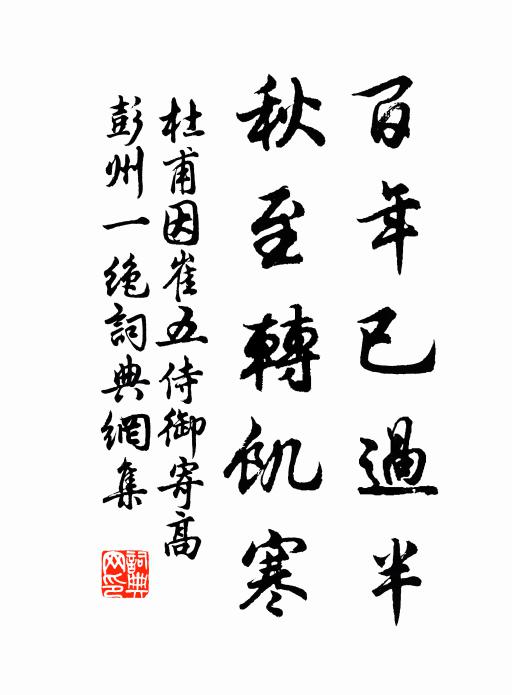 百年已過半
秋至轉飢寒
杜甫因崔五侍御寄高
彭州一絶詞典網集
詞典
网印